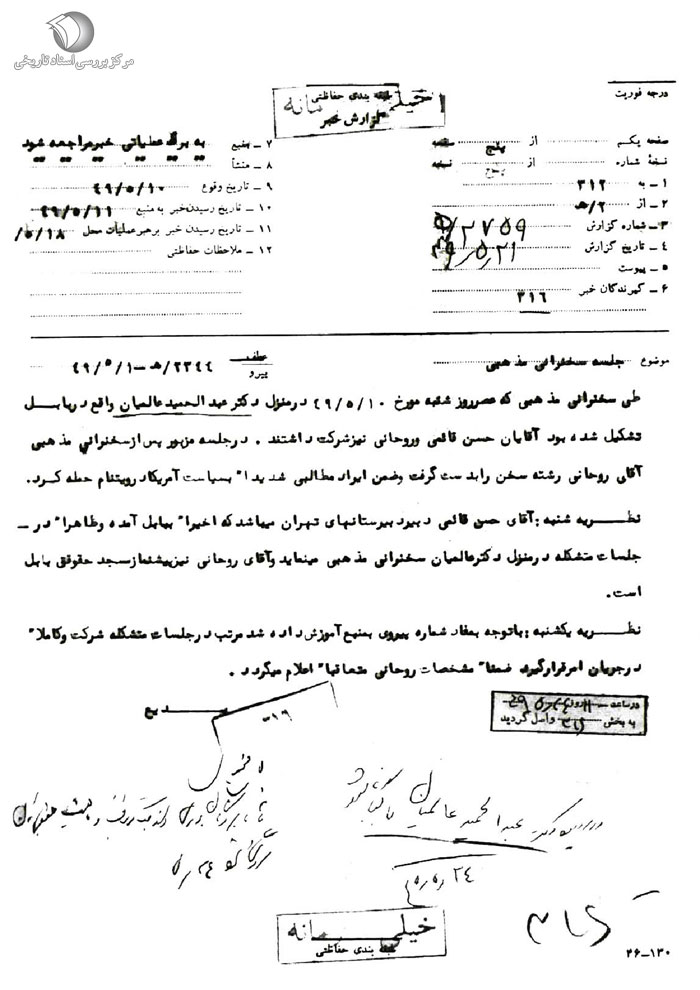 مرکز بررسی اسناد تاریخی
درجه فوریت
طبقه بندی حفاظتی
گزارش خبر
صفحه یکم از پنج صفحه
نسخهٔ شماره از پنج نسخه
۱ ـ به ۳۱۲
۲ ـ از ۲/ﻫ
۳ ـ شماره گزارش ۲۷۵۹
۴ ـ تاریخ گزارش ۴۹/۵/۲۱
۵ ـ پیوست
۶ ـ گیرندگان خبر ۳۱۶
۷ ـ منبع به برگ عملیاتی خبر مراجعه شود
۸ ـ منشأ
۹ ـ تاریخ وقوع ۴۹/۵/۱۰
۱۰ ـ تاریخ رسیدن خبر به منبع ۴۹/۵/۱۱
۱۱ ـ تاریخ رسیدن خبر برهبر عملیات محل ۵/۱۸/
۱۲ ـ ملاحظات حفاظتی
موضوع جلسه سخنرانی مذهبی
عطف
پیرو
۲۳۴۴/ﻫ ـ ۴۹/۵/۱
طی سخنرانی مذهبی که عصر روز شنبه مورخ ۴۹/۵/۱۰ در منزل دکتر عبدالحمید عالمیان واقع در بابل
تشکیل شده بود آقایان حسن قائمی و روحانی نیز شرکت داشتند . در جلسه مزبور پس از سخنرانی مذهبی
آقای روحانی رشته سخن را بدست گرفت و ضمن ایراد مطالبی شدیدا" بسیاست آمریکا در ویتنام حمله کرد.
نظریه شنبه : آقای حسن قائمی دبیر دبیرستانهای تهران میباشد که اخیرا" ببابل آمده و ظاهرا" در ـ
جلسات متشکله در منزل دکتر عالمیان سخنرانی مذهبی مینماید و آقای روحانی نیز پیشنماز مسجد حقوقی بابل
است.
نظریه یکشنبه : با توجه بمفاد شماره پیروی بمنبع آموزش داده شد مرتب در جلسات متشکله شرکت و کاملا"
در جریان امر قرار گیرد ضمنا" مشخصات روحانی متعاقبا" اعلام میگردد .
بدیع
۱۶ـ
در ساعت روز
به بخش ۳۱۶ واصل گردید
دکتر عبدالحمید عالمیان
۲۴/۵
خیلی محرمانه
طبقه بندی حفاظتی
۲۶ـ۱۳۰